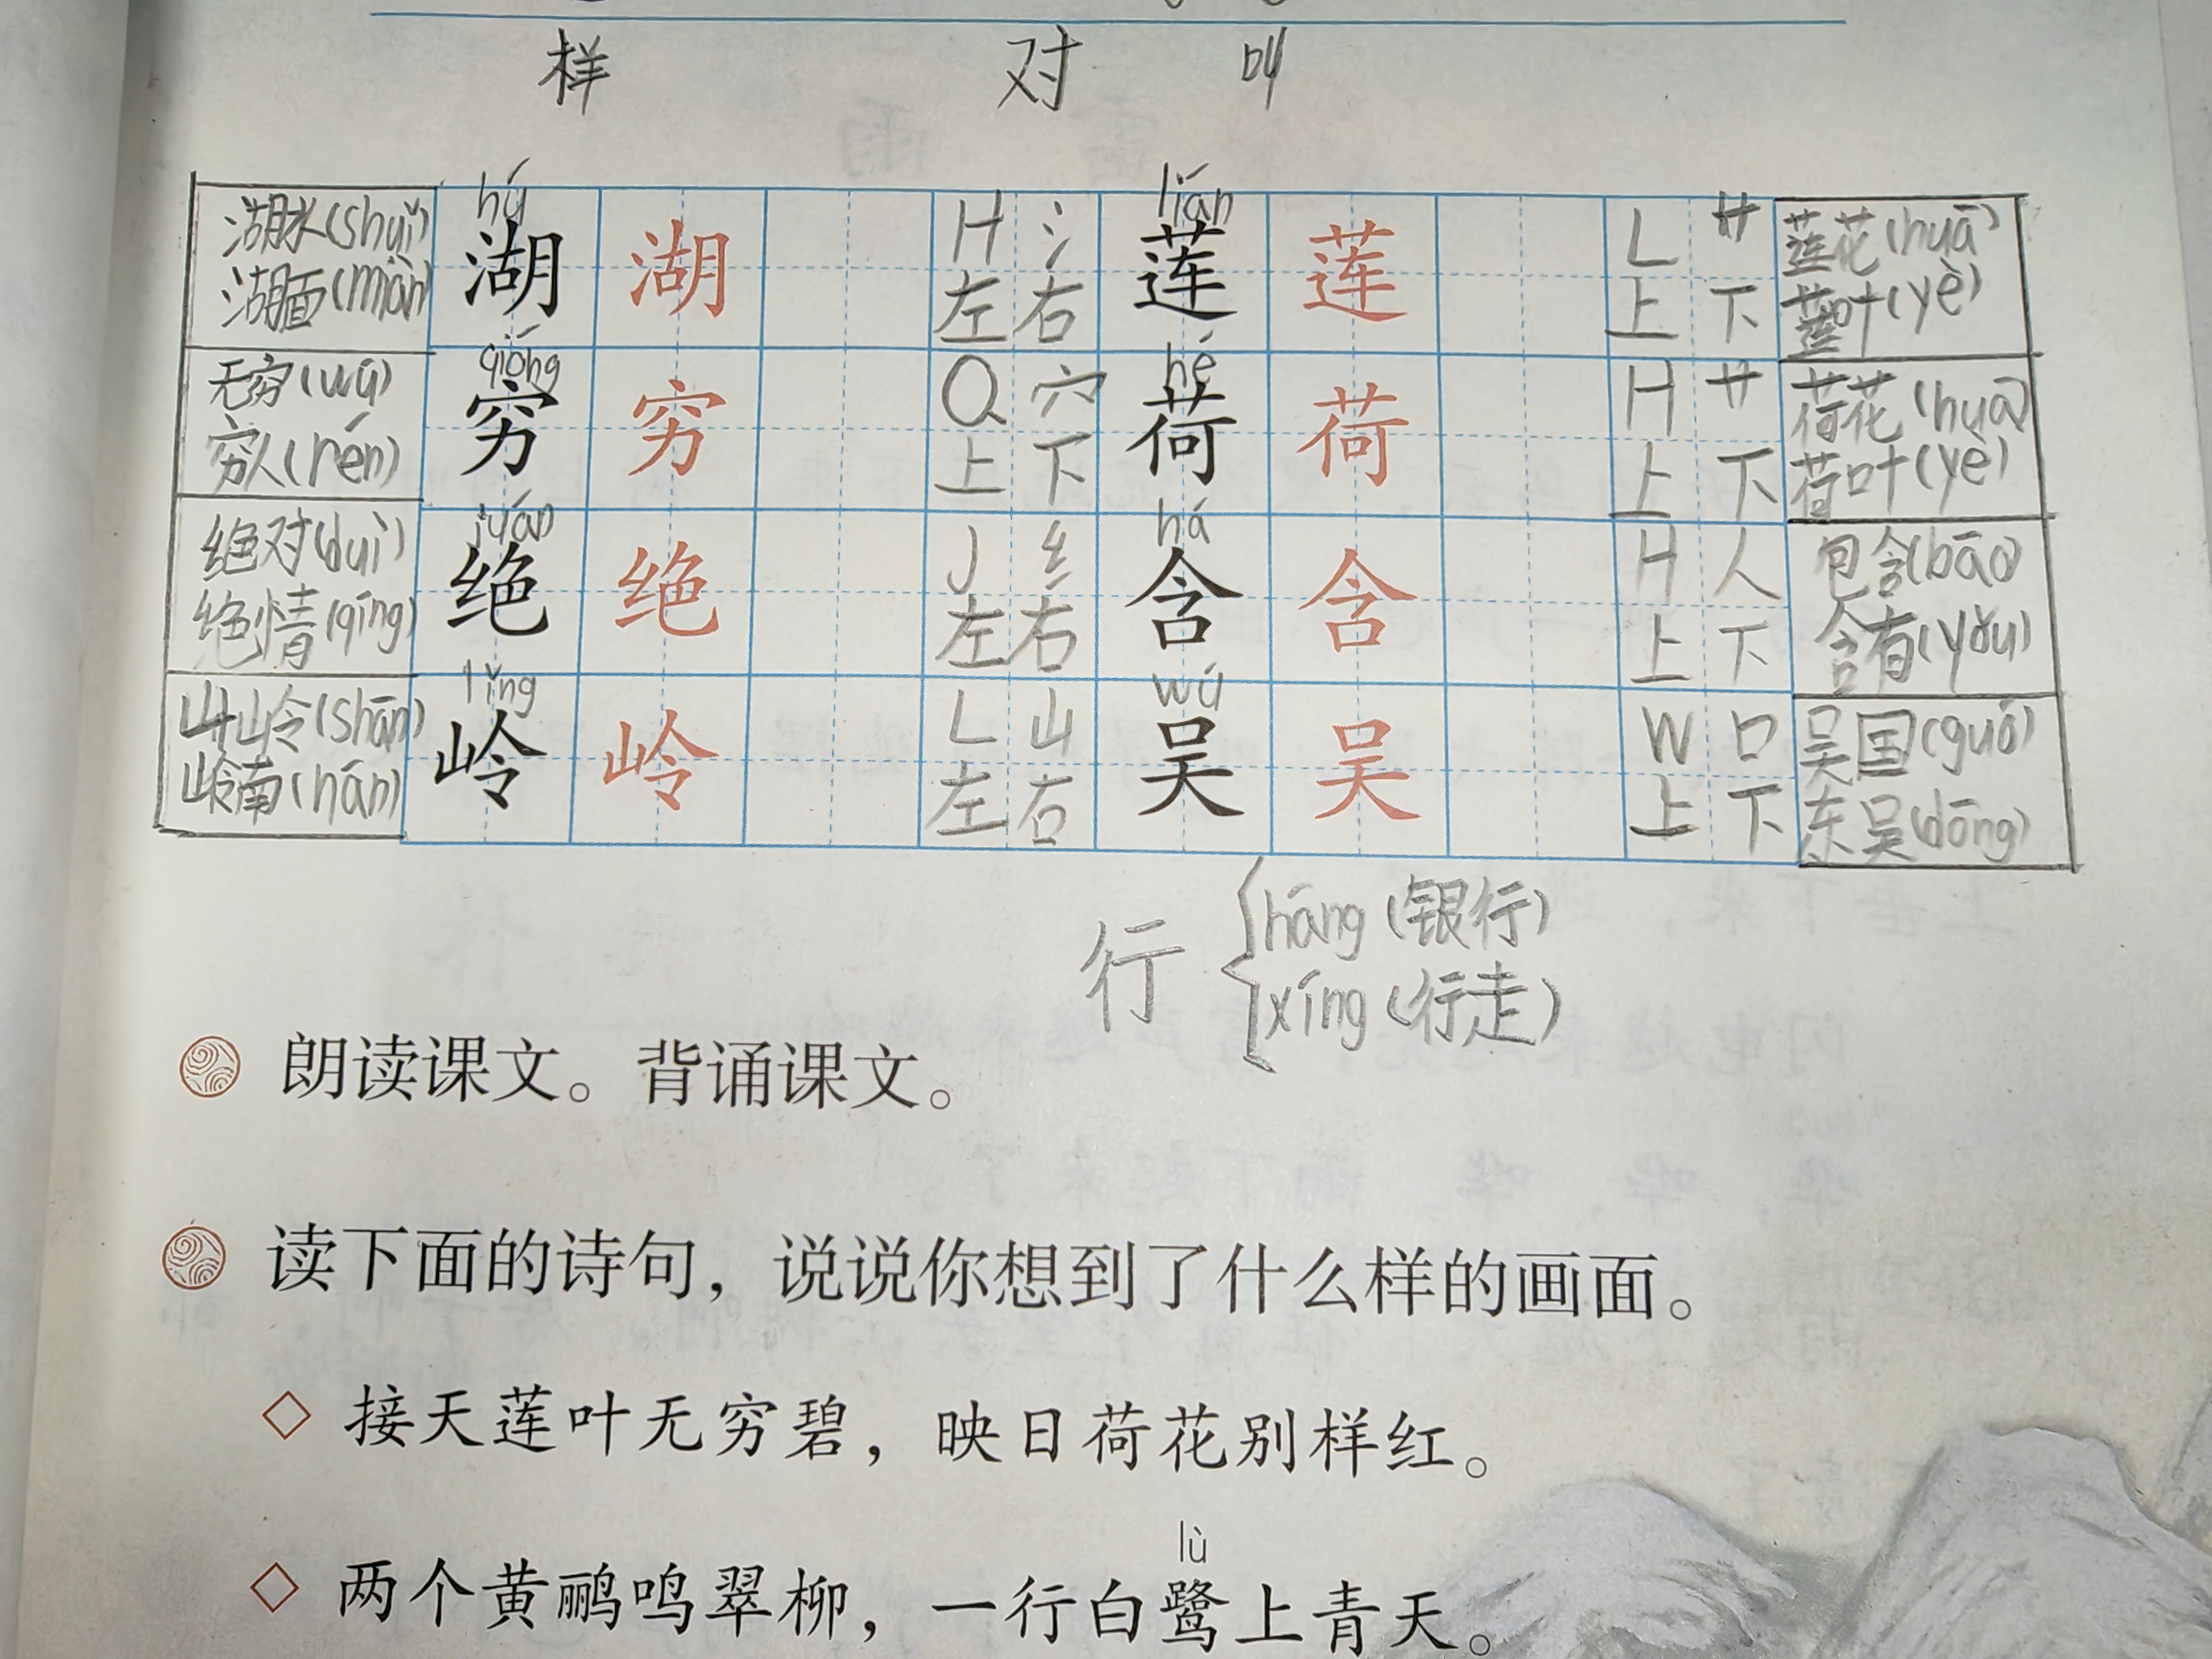 样 对 叫
湖水(shuǐ) hú 湖 湖 H 氵 lián 莲 莲 L 艹 莲花(huā)
湖面(miàn) 左 右 上 下 莲叶(yè)
无穷(wú) qióng 穷 穷 Q 穴 hé 荷 荷 H 艹 荷花(huā)
穷人(rén) 上 下 上 下 荷叶(yè)
绝对(duì) juán 绝 绝 J 纟 há 含 含 H 人 包含(bāo)
绝情(qíng) 左 右 上 下 含有(yǒu)
山岭(shān) lǐng 岭 岭 L 山 wú 吴 吴 W 口 吴国(guó)
岭南(nán) 左 右 上 下 东吴(dōng)
行 háng(银行)
xíng(行走)
朗读课文。背诵课文。
读下面的诗句，说说你想到了什么样的画面。
◇ 接天莲叶无穷碧，映日荷花别样红。
lù
◇ 两个黄鹂鸣翠柳，一行白鹭上青天。